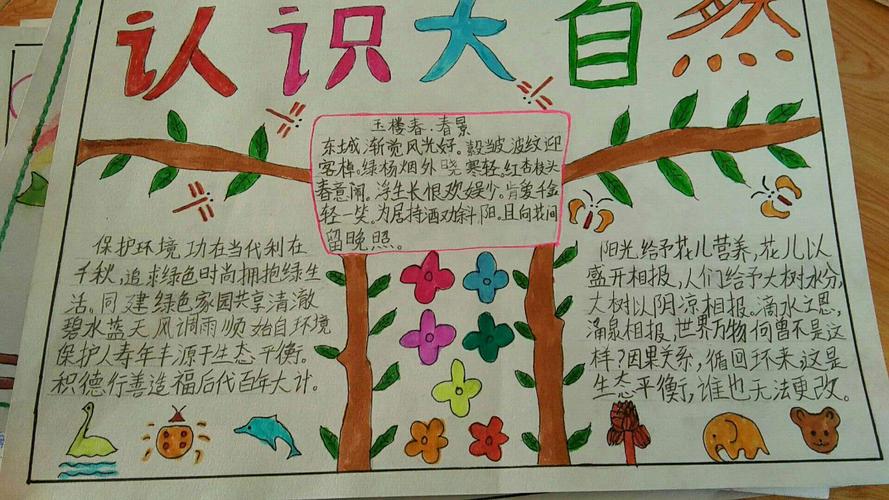 认识大自然
玉楼春·春景
东城渐觉风光好。縠皱波纹迎
客棹。绿杨烟外晓寒轻。红杏枝头
春意闹。浮生长恨欢娱少。肯爱千金
轻一笑。为君持酒劝斜阳。且向花间
留晚照。
保护环境功在当代利在
千秋,追求绿色时尚拥抱绿生
活。同建绿色家园共享清澈
碧水蓝天风调雨顺始自环境
保护人寿年丰源于生态平衡。
积德行善造福后代百年大计。
阳光给予花儿营养,花儿以
盛开相报,人们给予大树水分,
大树以阴凉相报。滴水之恩,
涌泉相报,世界万物何曾不是这
样?因果关系,循回环来,这是
生态平衡,谁也无法更改。